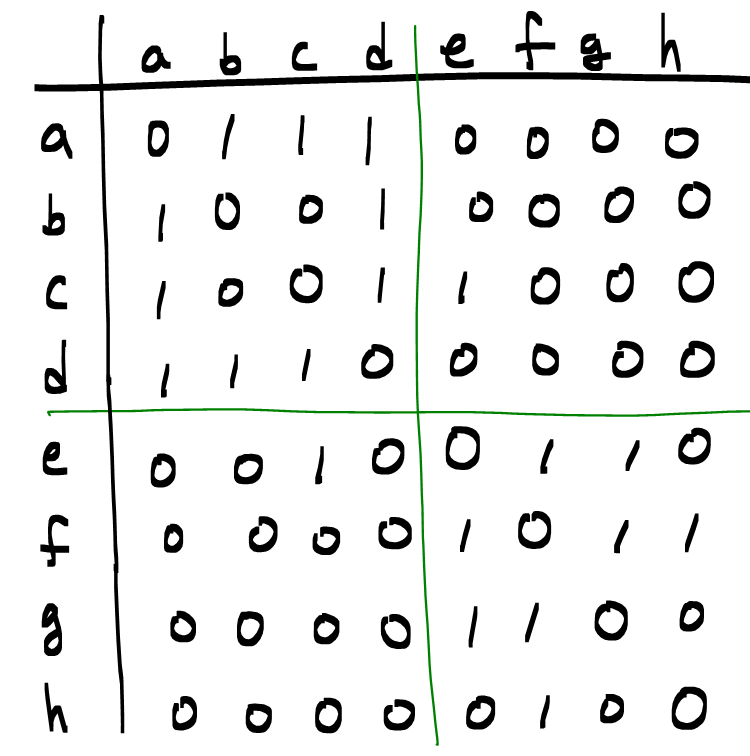 a b c d e f g h
a 0 1 1 1 0 0 0 0
b 1 0 0 1 0 0 0 0
c 1 0 0 1 1 0 0 0
d 1 1 1 0 0 0 0 0
e 0 0 1 0 0 1 1 0
f 0 0 0 0 1 0 1 1
g 0 0 0 0 1 1 0 0
h 0 0 0 0 0 1 0 0